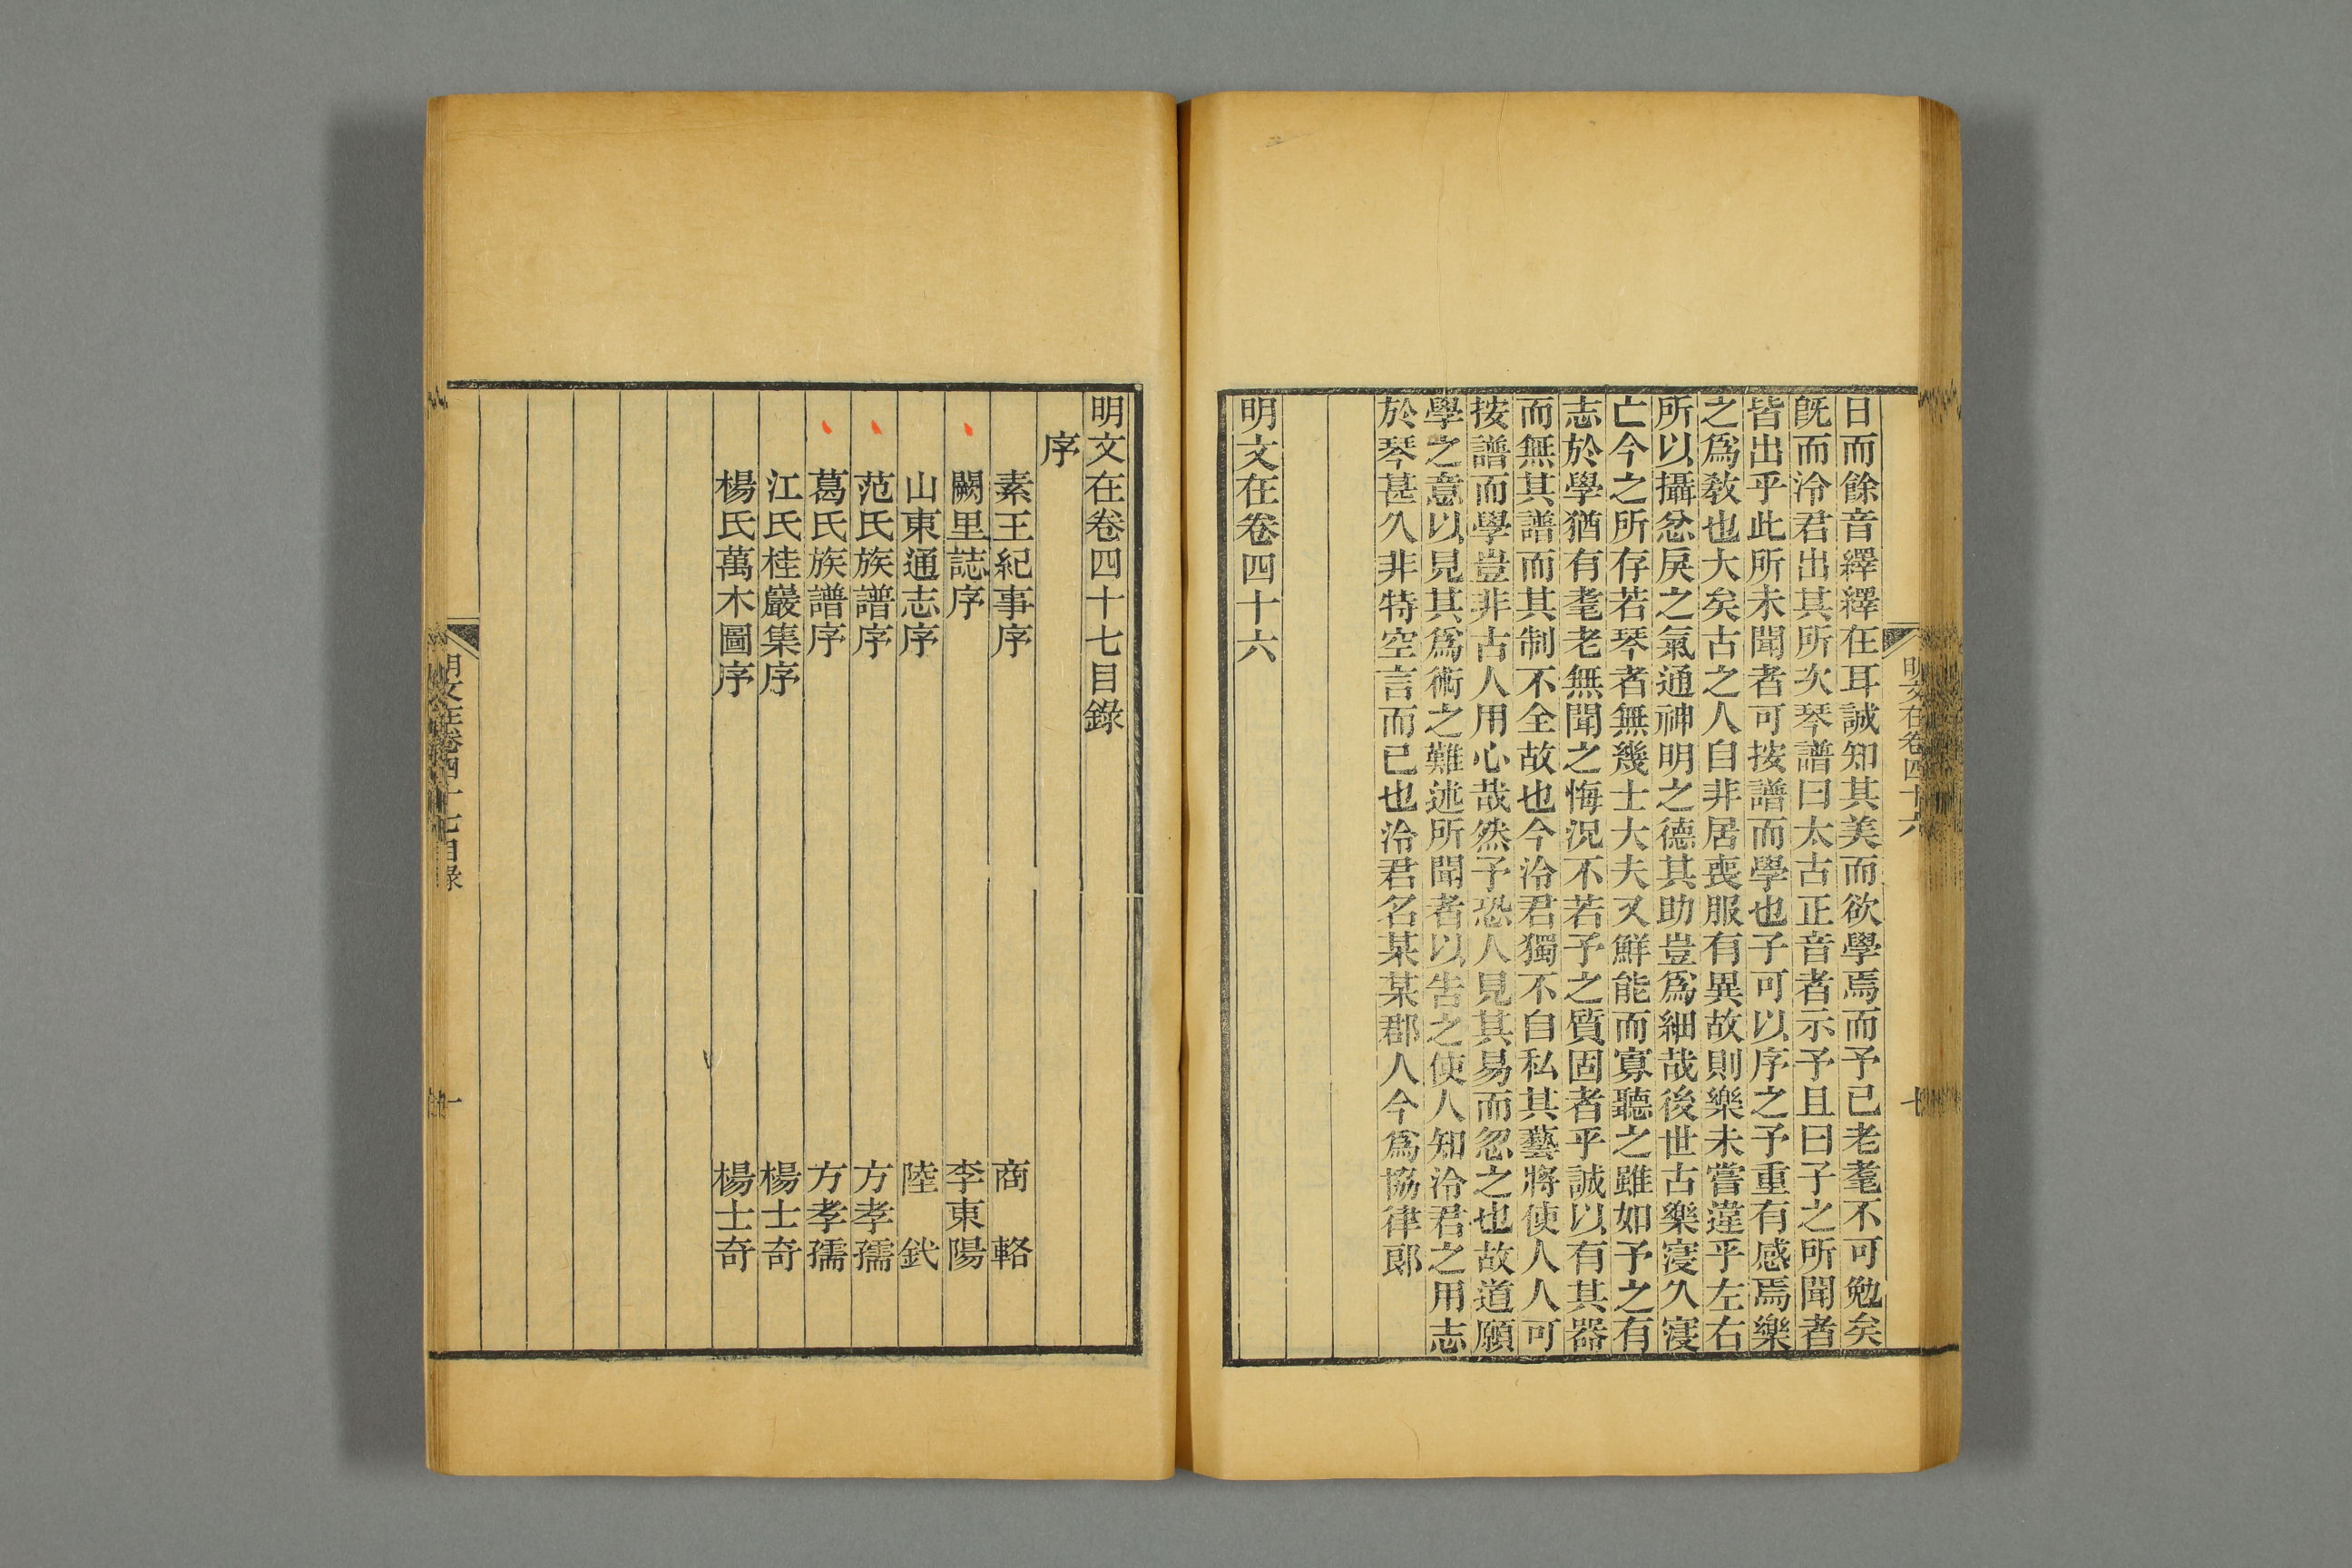 日而餘音繹繹在耳誠知其美而欲學焉而予已老耄不可勉矣
旣而冷君出其所次琴譜曰太古正音者示予且曰子之所聞者
皆出乎此所未聞者可按譜而學也子可以序之予重有感焉樂
之爲敎也大矣古之人自非居喪服有異故則樂未嘗違乎左右
所以攝忿戾之氣通神明之德其助豈爲細哉後世古樂寖久寖
亡今之所存若琴者無幾士大夫又鮮能而寡聽之雖如予之有
志於學猶有耄老無聞之悔況不若予之質固者乎誠以有其器
而無其譜而其制不全故也今冷君獨不自私其藝將使人人可
按譜而學豈非古人用心哉然予恐人見其易而忽之也故道願
學之意以見其爲術之難述所聞者以告之使人知冷君之用志
於琴甚久非特空言而已也冷君名某某郡人今爲協律郎
明文在卷四十六
明文在卷四十六
十
明文在卷四十七目錄
序
素王紀事序 商輅
闕里誌序 李東陽
山東通志序 陸釴
范氏族譜序 方孝孺
葛氏族譜序 方孝孺
江氏桂巖集序 楊士奇
楊氏萬木圖序 楊士奇
明文在卷四十七目錄
一